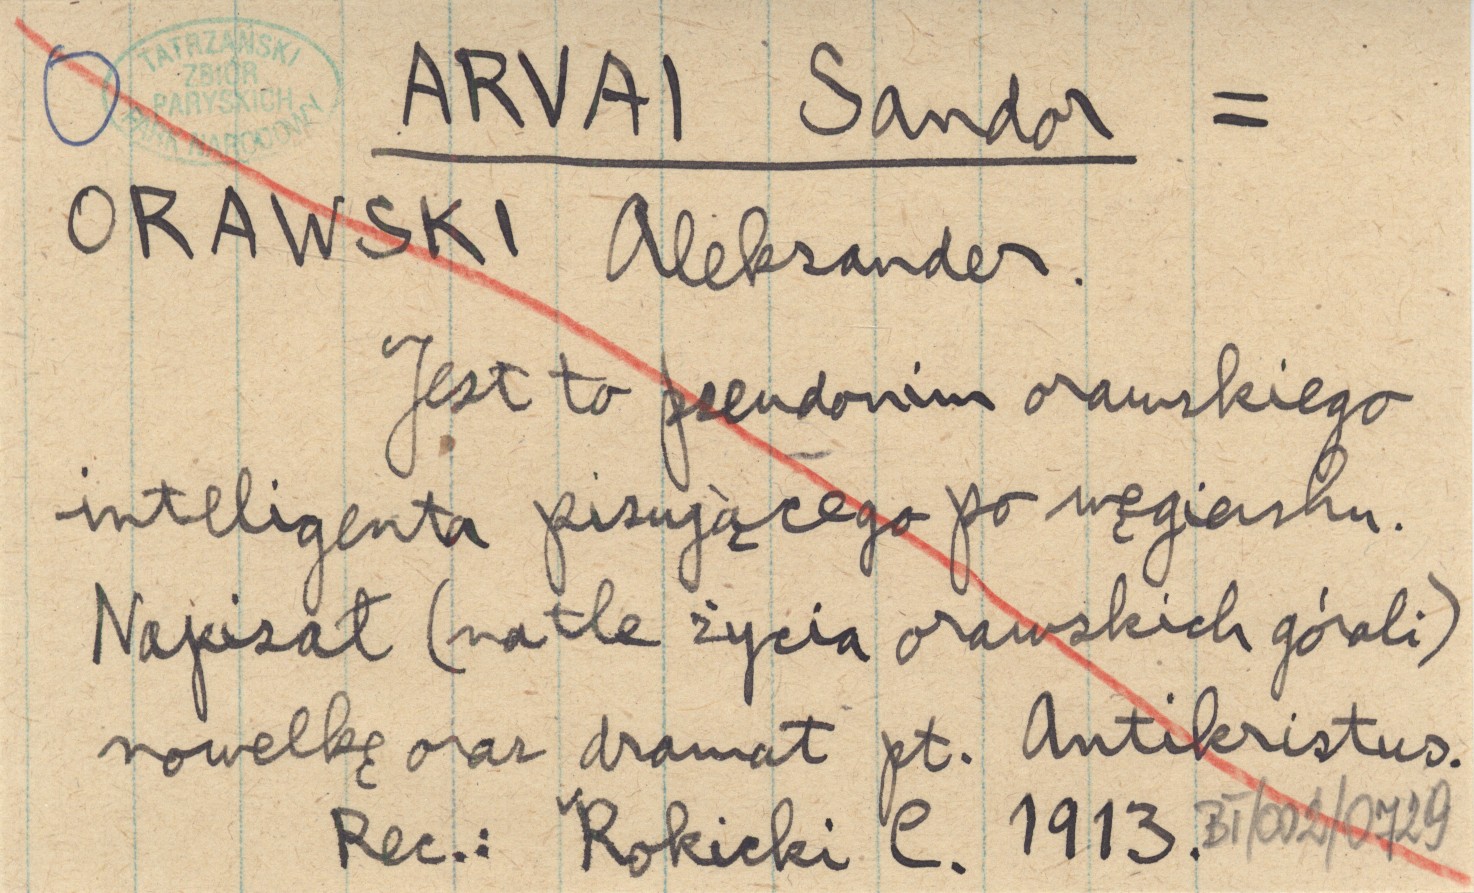 TATRZAŃSKI
ZBIÓR
PARYSKICH
PARK NARODOWY
ARVAI Sandor =
ORAWSKI Aleksander.
Jest to pseudonim orawskiego
inteligenta pisującego po węgiersku.
Napisał (na tle życia orawskich górali)
nowelkę oraz dramat pt. Antikristus.
Rec.: Rokicki C. 1913.
BT/002/0729